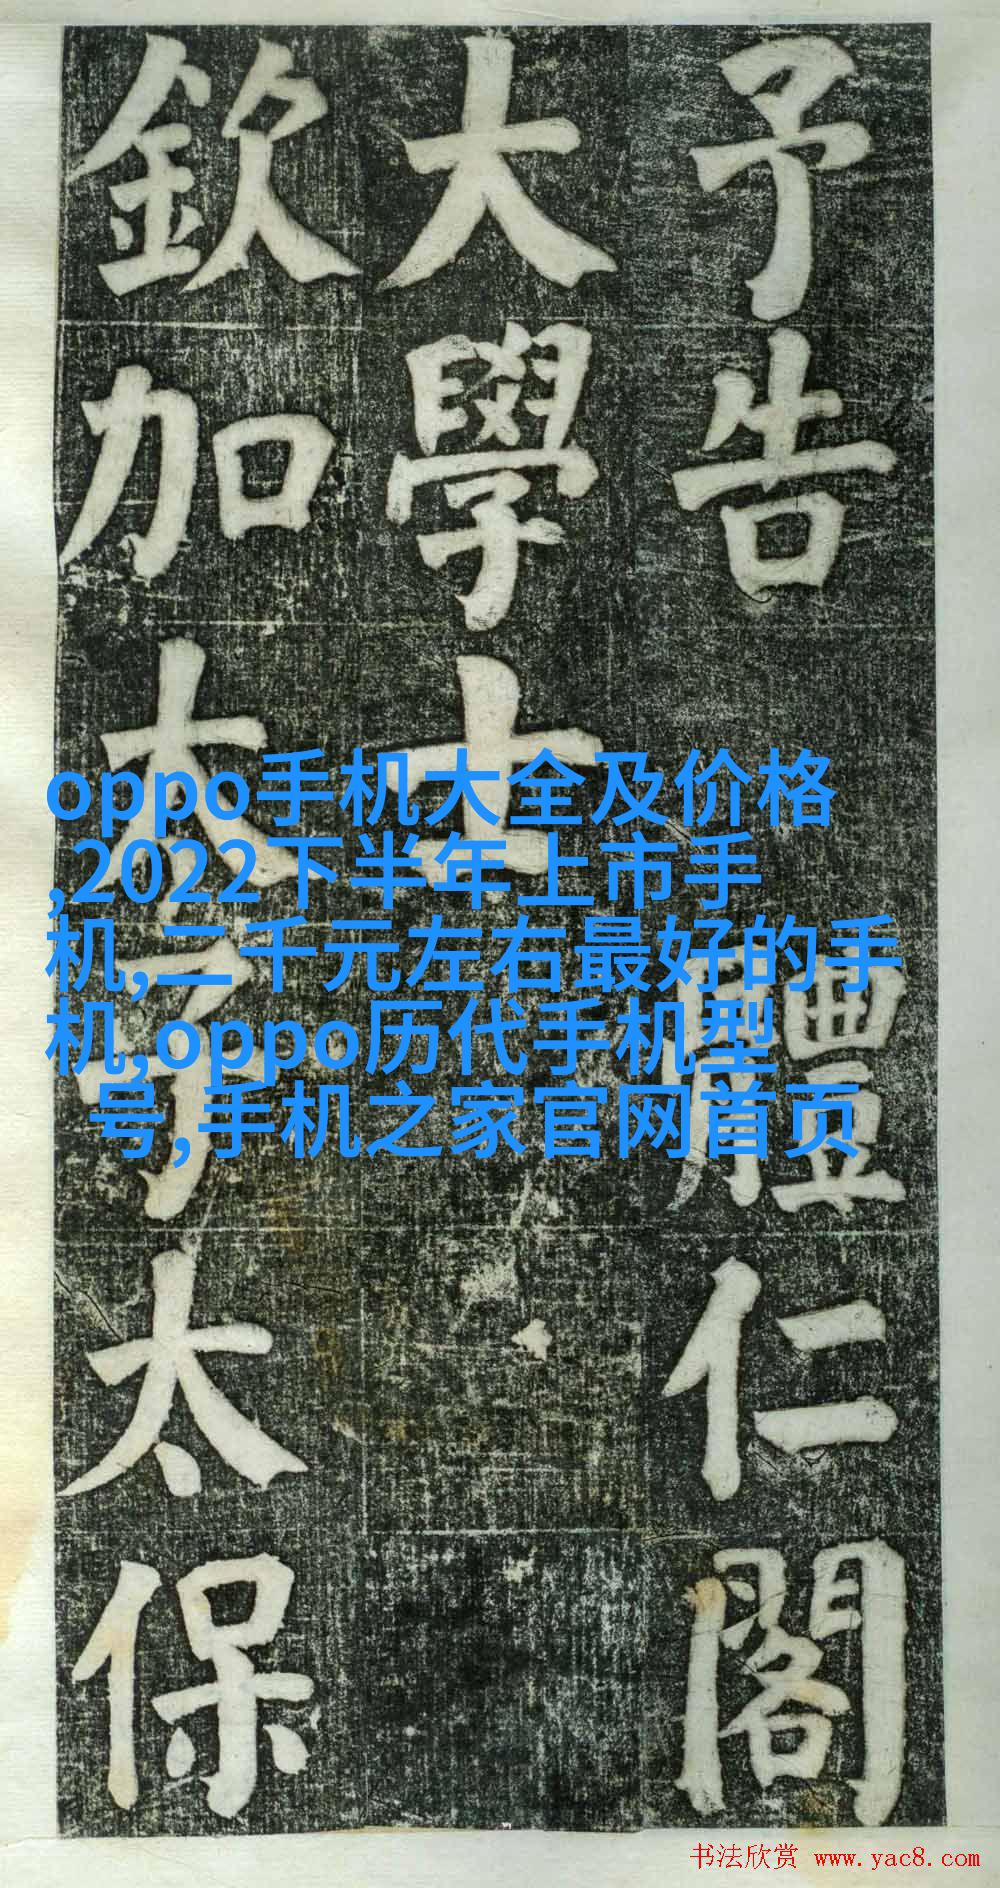 予告 體仁閣
大學士
欽加太子太保
oppo手机大全及价格
,2022下半年上市手
机,二千元左右最好的手
机,oppo历代手机型
号,手机之家官网首页
书法欣赏 www.yac8.com